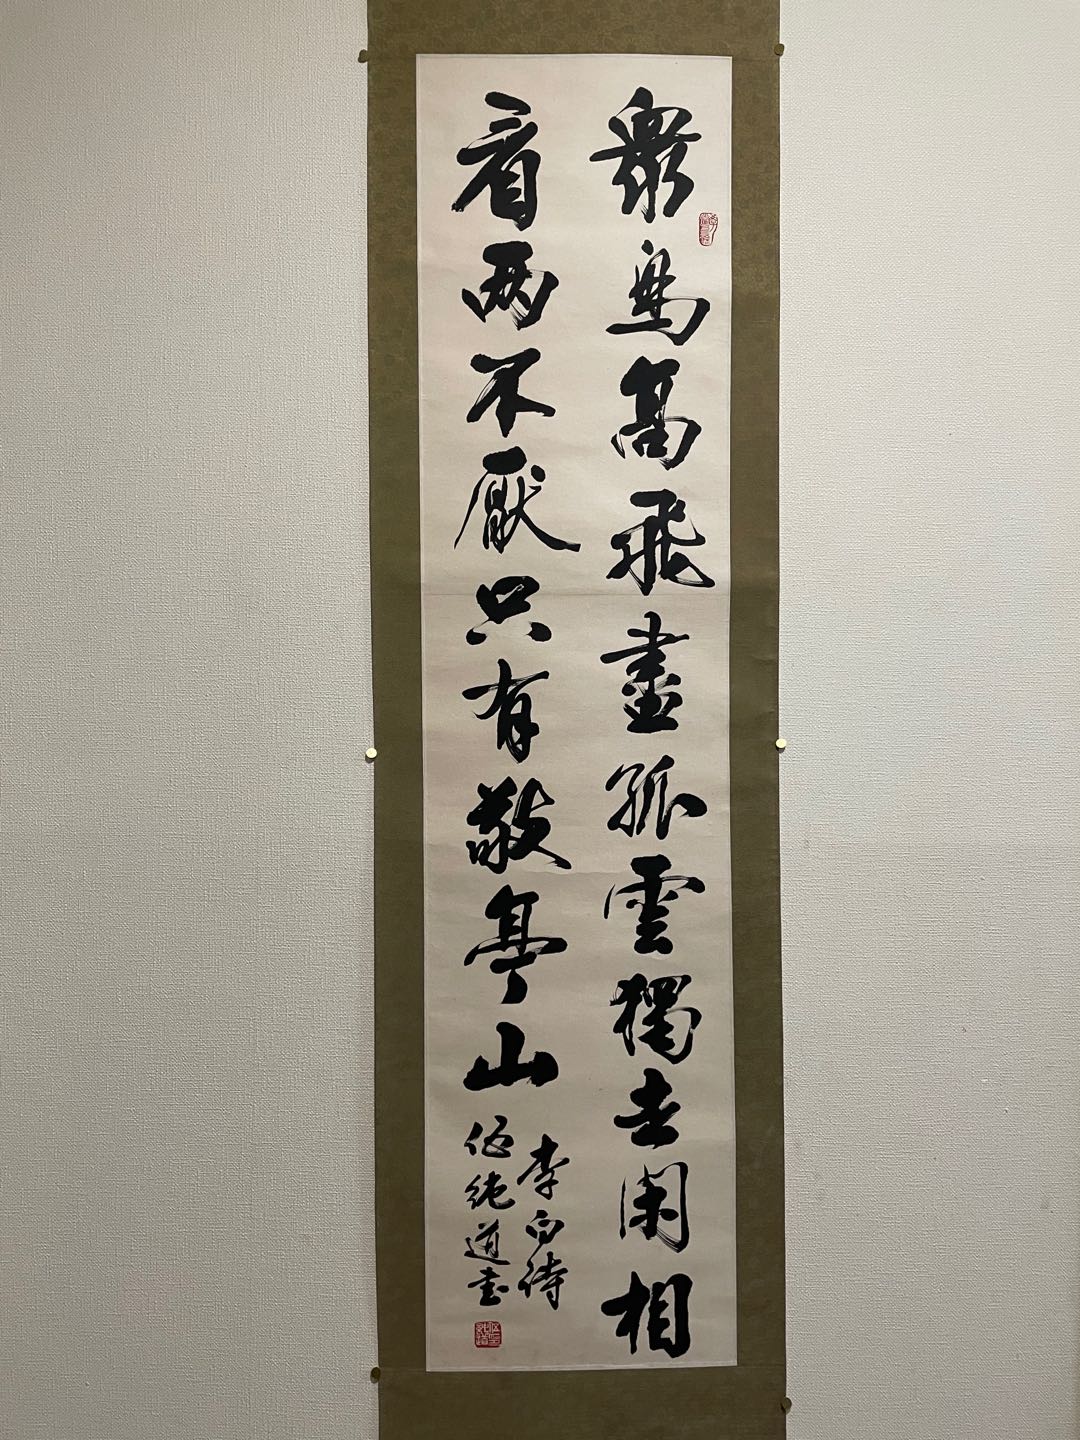 衆鳥高飛盡孤雲獨去閑相
看兩不厭只有敬亭山
李白詩
伍純道書